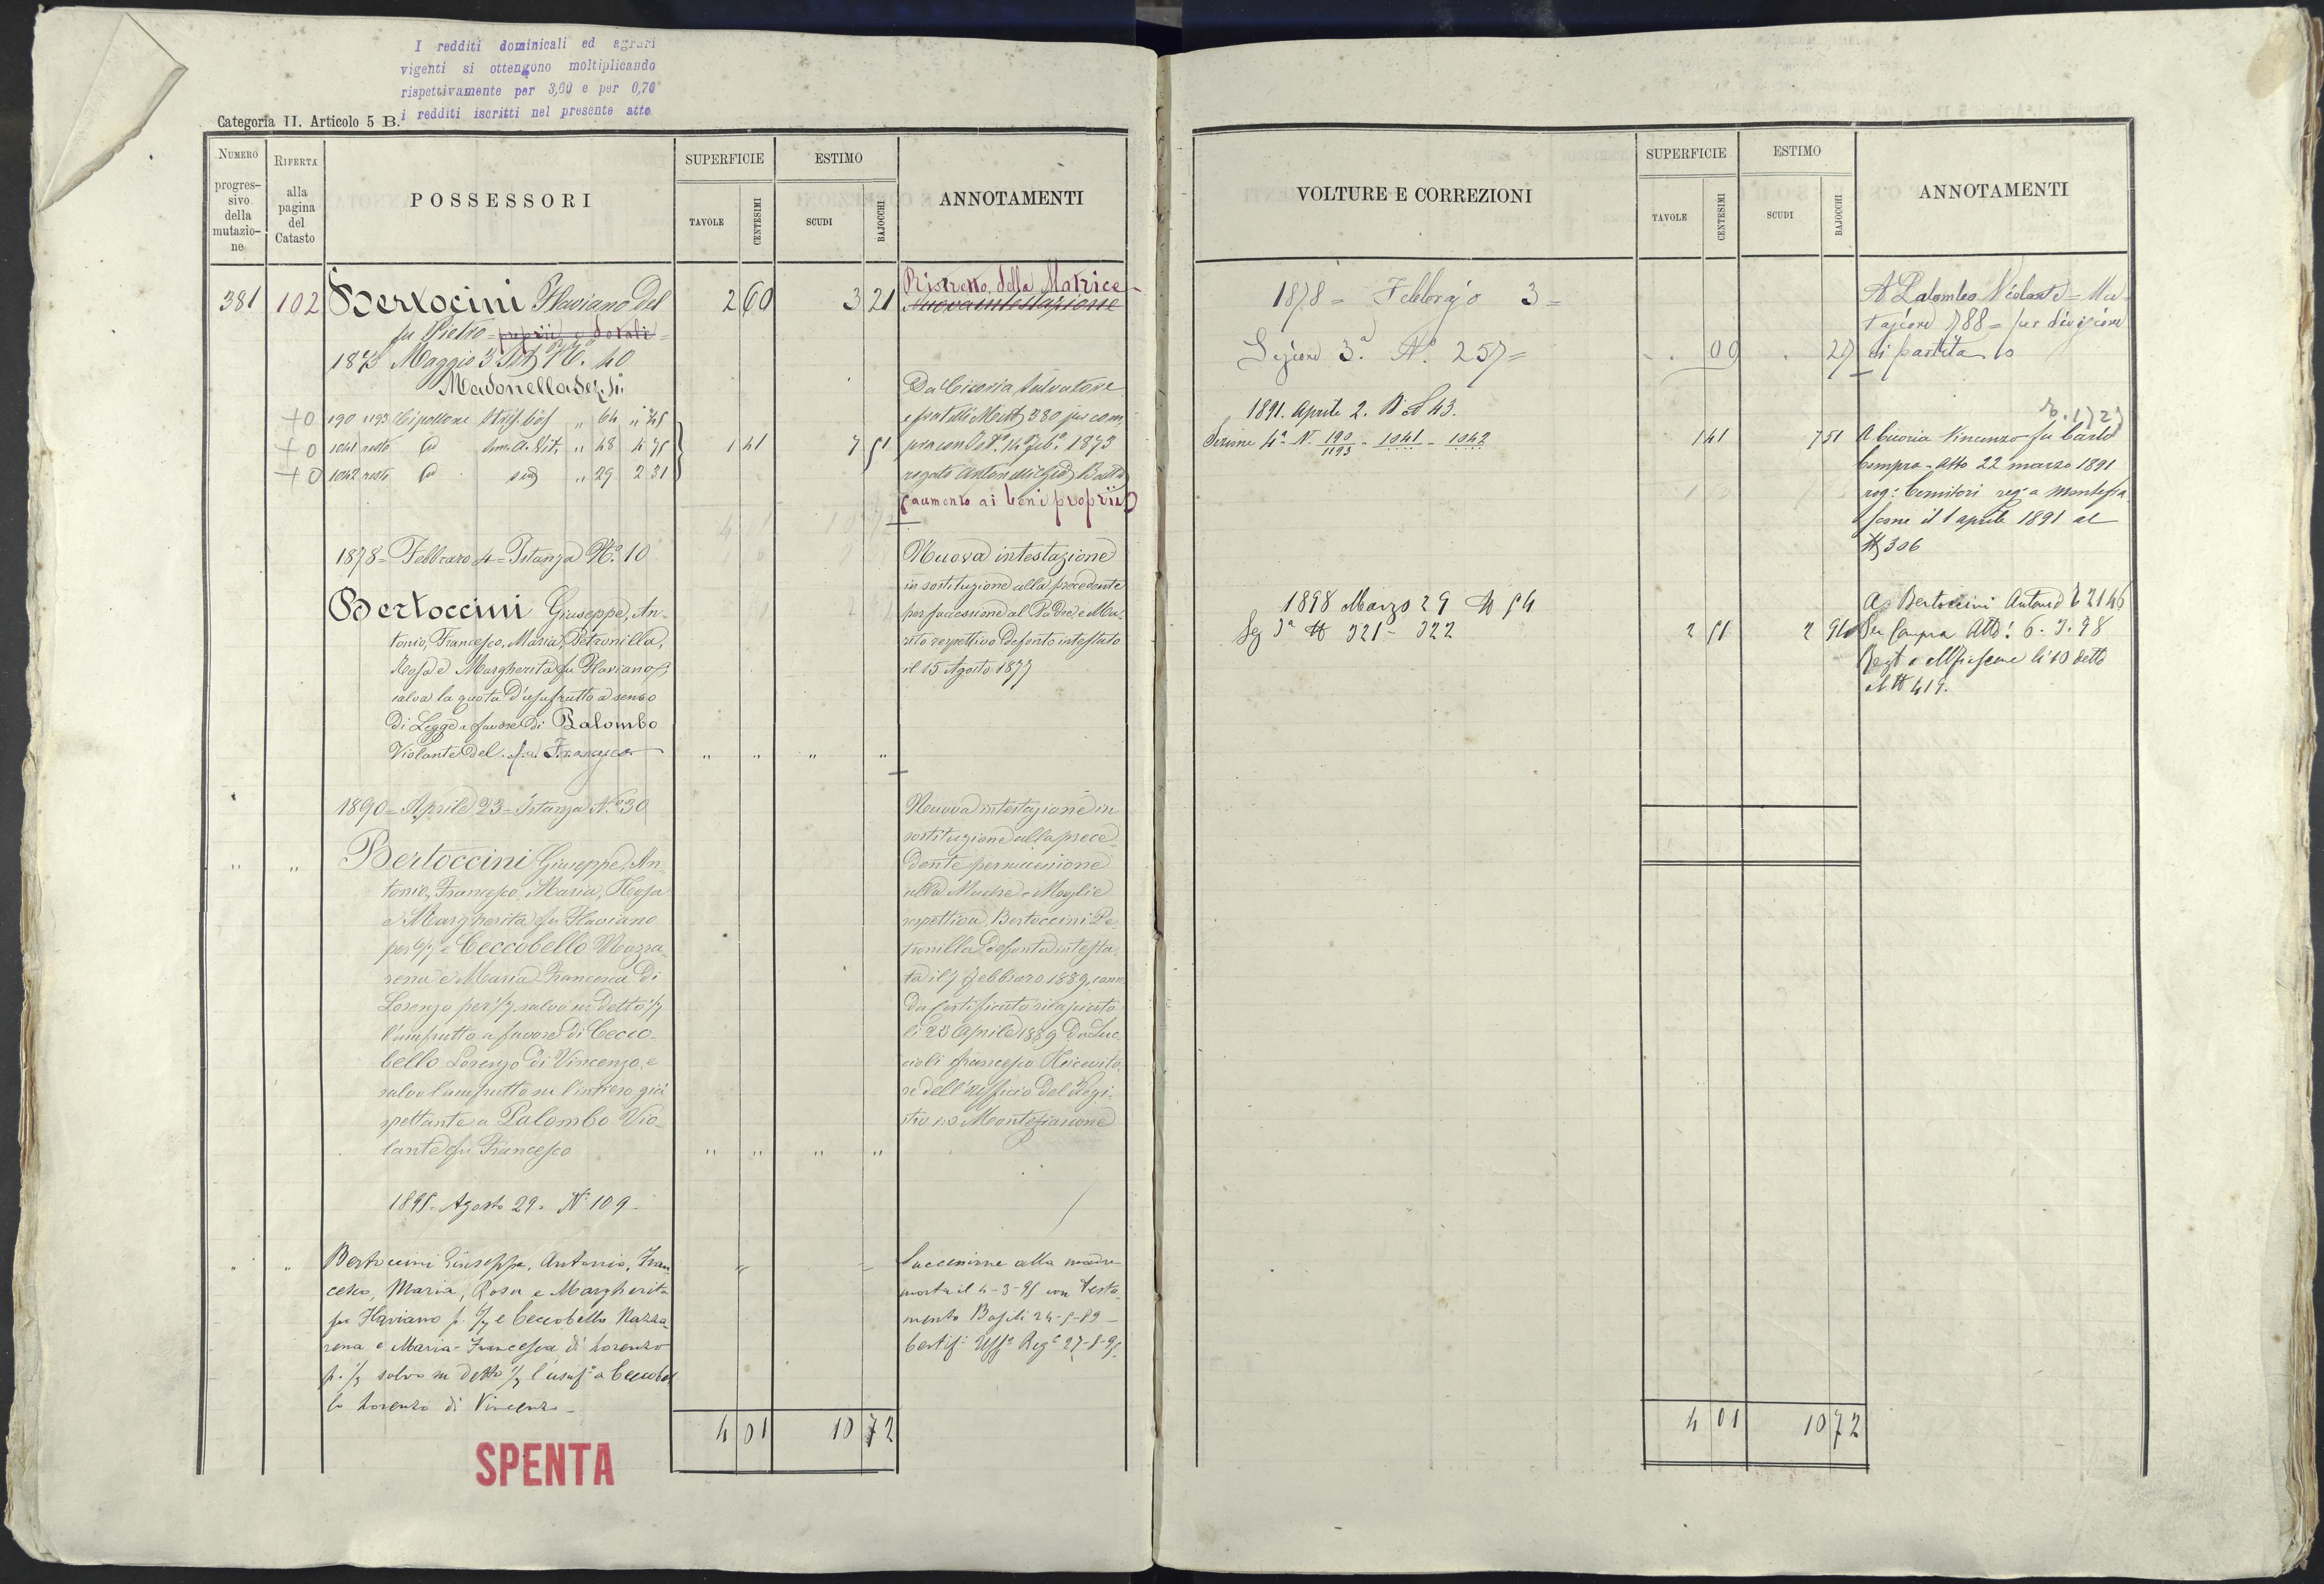 I redditi dominicali ed agrari
vigenti si ottengono moltiplicando
rispettivamente per 3,60 e per 0,70
i redditi iscritti nel presente atto
Categoria II. Articolo 5 B.
NUMERO
progres-
sivo
della
mutazio-
ne
RIFERTA
alla
pagina
del
Catasto
POSSESSORI
SUPERFICIE
TAVOLE
CENTESIMI
ESTIMO
SCUDI
BAJOCCHI
ANNOTAMENTI
381 102 Bertocini Flaviano del 2 60 3 21 Ristretto della Matrice
Nuova intestazione
fu Pietro = proprii e dotali =
1873 Maggio 3 N.o 40
Madonella Sez.
Da Cicoria Salvatore
+0 190 1193 Cipollone 64 " 45
e fratelli 380 per com
+0 1041 resto 48 4 75 1 41 7 51
pra con 1873
+0 1042 resto 29 2 31
rogato
aumento ai beni proprii
1878 = Febbraro 4 = Istanza N.o 10
Nuova intestazione
in sostituzione alla precedente
Bertoccini Giuseppe, An-
per successione al Padre e Ma-
tonio, Francesco, Maria, Petronilla,
rito respettivo defonto intestato
Rosa e Margherita fu Flaviano
il 15 Agosto 1877
salva la quota d'usufrutto a senso
di Legge a favore di Palombo
Violante del fu Francesco " " " "
1890 = Aprile 23 = Istanza N.o 30
Nuova intestazione in
sostituzione alla prece
" " Bertoccini Giuseppe, An-
dente per successione
tonio, Francesco, Maria, Rosa
alla Madre e Moglie
e Margherita fu Flaviano
respettiva Bertoccini Pe
per 6/7 e Ceccobello Nazza
tronilla defonta intesta
rena e Maria Francesca di
ta il 7 Febbraro 1889, come
Lorenzo per 1/7 salvo su detto 1/7
da Certificato rilasciato
l'usufrutto a favore di Cecco-
li 23 Aprile 1889 da Luc
bello Lorenzo di Vincenzo, e
cioli Francesco Ricevito
salvo l'usufrutto su l'intiero già
re dell'Ufficio del Regi
spettante a Palombo Vio-
stro in Montefiascone
lante fu Francesco " " " "
1895. Agosto 29. N. 109
" " Bertoccini Giuseppe, Antonio, Fran
Successione alla madre
cesco, Maria, Rosa e Margherita
morta il 4-3-95 con testa
fu Flaviano p. 6/7 e Ceccobello Nazza
mento Basili 24-5-89
rena e Maria-Francesca di Lorenzo
Certif. Uff.o Reg.o 27-8-95
p. 1/7 salvo su detto 1/7 l'usuf.o a Ceccobel
lo Lorenzo di Vincenzo
4 01 10 72
SPENTA
VOLTURE E CORREZIONI
SUPERFICIE
TAVOLE
CENTESIMI
ESTIMO
SCUDI
BAJOCCHI
ANNOTAMENTI
1878 = Febbrajo 3 =
A Palombo Violante = Mu-
tazione 788 = per divisione
Sezione 3.a N.o 257 = 09 27 di partita
1891. Aprile 2. N.o 43.
Sezione 4.a N. 190/1193 - 1041 - 1042 1 41 7 51 A Cicoria Vincenzo fu Carlo
Compra - Atto 22 marzo 1891
rog: reg: a Montefia
scone il 1 aprile 1891 al
N 306
1898 Marzo 29 N 54
A Bertoccini Antonio 2146
Sez 3a N 321 - 322 2 51 2 94 Per Compra Atto: 6. 3. 98
li 10 detto
al N 419.
4 01 10 72